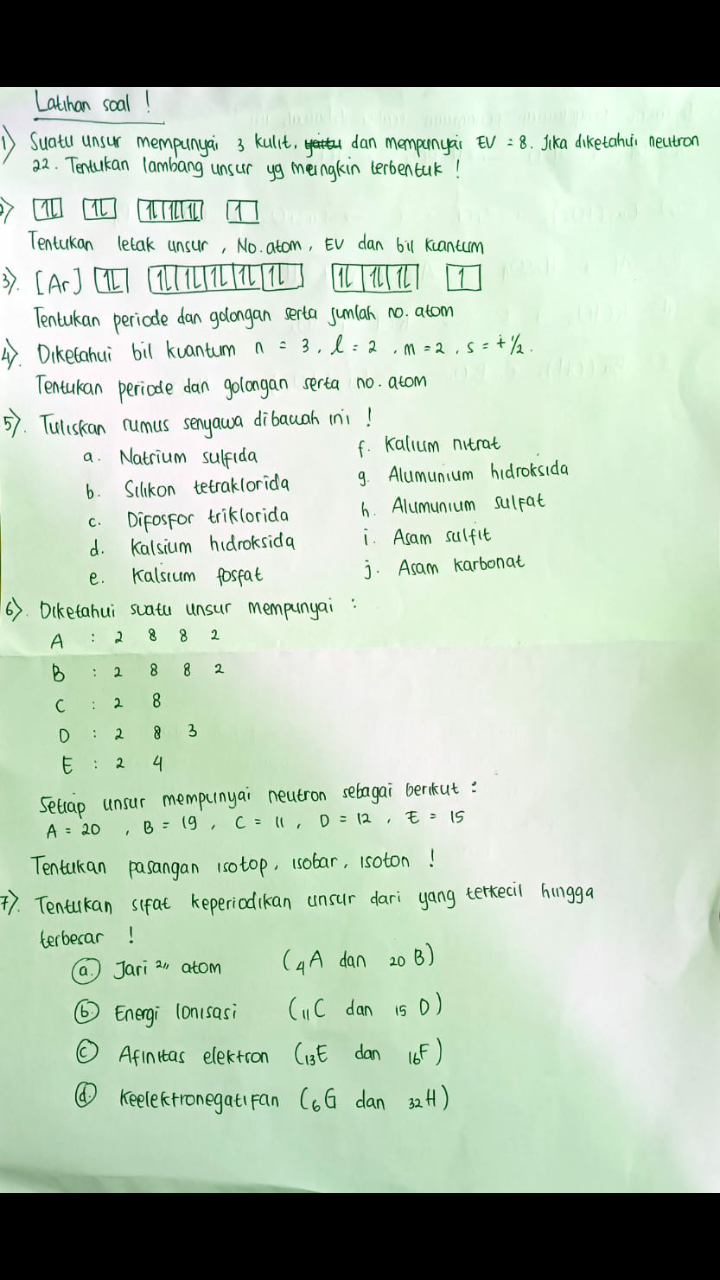 Latihan soal !
1) Suatu unsur mempunyai 3 kulit, yaitu dan mempunyai EV = 8. Jika diketahui neutron
22. Tentukan lambang unsur yg meingkin terbentuk !
2) [1L] [1L] [1L|1L|1L] [1]
Tentukan letak unsur, No. atom, EV dan bil kuantum
3). [Ar] [1L] [1L|1L|1L|1L|1L] [1L|1L|1L] [1]
Tentukan periode dan golongan serta jumlah no. atom
4). Diketahui bil kuantum n = 3, l = 2, m = 2, s = +½.
Tentukan periode dan golongan serta no. atom
5). Tuliskan rumus senyawa dibawah ini !
a. Natrium sulfida
b. Silikon tetraklorida
c. Difosfor triklorida
d. Kalsium hidroksida
e. Kalsium fosfat
f. Kalium nitrat
g. Alumunium hidroksida
h. Alumunium sulfat
i. Asam sulfit
j. Asam karbonat
6). Diketahui suatu unsur mempunyai :
A : 2 8 8 2
B : 2 8 8 2
C : 2 8
D : 2 8 3
E : 2 4
Setiap unsur mempunyai neutron sebagai berikut :
A = 20, B = 19, C = 11, D = 12, E = 15
Tentukan pasangan isotop, isobar, isoton !
7). Tentukan sifat keperiodikan unsur dari yang terkecil hingga
terbesar !
a. Jari 2" atom (₄A dan ₂₀B)
b. Energi Ionisasi (₁₁C dan ₁₅D)
c Afinitas elektron (₁₃E dan ₁₆F)
d. Keelektronegatifan (₆G dan ₃₂H)